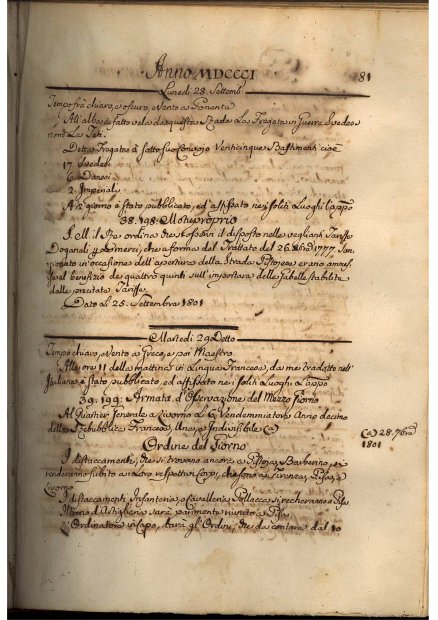 Anno MDCCCI
81
Lunedi 28. Settemb.
Tempo frà chiaro, e oscuro, e Vento a Ponente
All'alba à fatto vela da questa Rada La Fregata in Guerra Svedese
nom. La
Detta Fregata à sotto suo Convojo Venticinque Bastimenti cioè
17. Svedesi
6. Danesi
2. Imperiali
giorno è stato pubblicato, ed affissato nei soliti Luoghi l'app.o
38. 198. Motuproprio
S. M. il Re ordina che si osservi il disposto nelle veglianti Tariffe
Doganali che a forma del Trattato del 1777.
in occasione dell'apertura della Strada Pistojese erano ammesse
al benefizio dei quattro quinti sull'importare delle Gabelle stabilite
dalle precitate Tariffe.
Dato li 25. Settembre 1801
Martedi 29 Detto
Tempo chiaro, e Vento a Greco, e poi Maestro.
Alle ore 11 della mattina in Lingua Francese, da me tradotto nell'
Italiana è stato pubblicato, ed affissato nei soliti Luoghi l'app.o
39. 199: Armata d'Osservazione del Mezzo Giorno
Al Quartier Generale a Livorno li 6. Vendemmiatore Anno decimo
della Repubblica Francese, Una, e Indivisibile (a)
(a) 28. 7bre
1801
Ordine del Giorno
I distaccamenti, che si trovano ancora a Pistoja, Barberino, si
renderanno subito ai Loro respettivi Corpi, che sono a Firenze, Pisa, e
Livorno
I distaccamenti Infanteria, e Cavalleria Pollacca si recheranno a Pisa
Il Treno d'Artiglieria sarà parimente riunito a Pisa.
L'Ordinatore in Capo, darà gli Ordini, che da contare dal 10